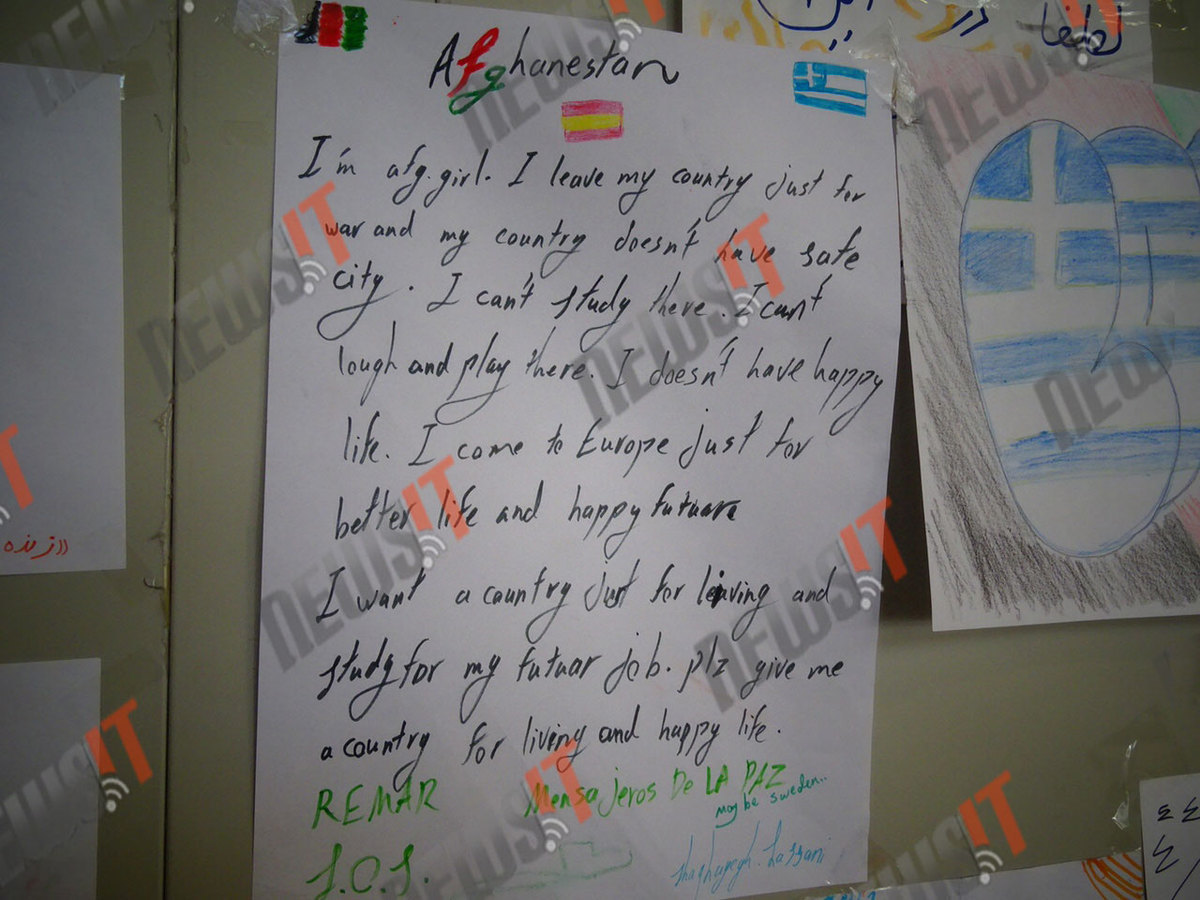 Afghanestan
I'm afg.girl. I leave my country just for
war and my country doesn't have safe
city. I can't study there. I can't
lough and play there. I doesn't have happy
life. I come to Europe just for
better life and happy futuare
I want a country just for leiving and
study for my futuar job. plz give me
a country for living and happy life.
REMAR Mensajeros De LA PAZ
may be sweden..
S.O.S.
لطفا
NEWSIT
NEWSIT
NEWSIT
NEWSIT
NEWSIT
NEWSIT
NEWSIT
NEWSIT
NEWSIT
NEWSIT
NEWSIT